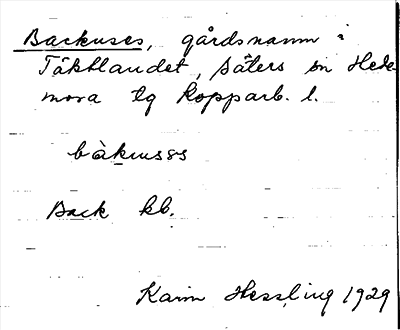 Backuses, gårdsnamn i
Täktlandet, Säters sn Hede-
mora tg Kopparb. l.
bàkusəs
Back kb.
Karin Hessling 1929